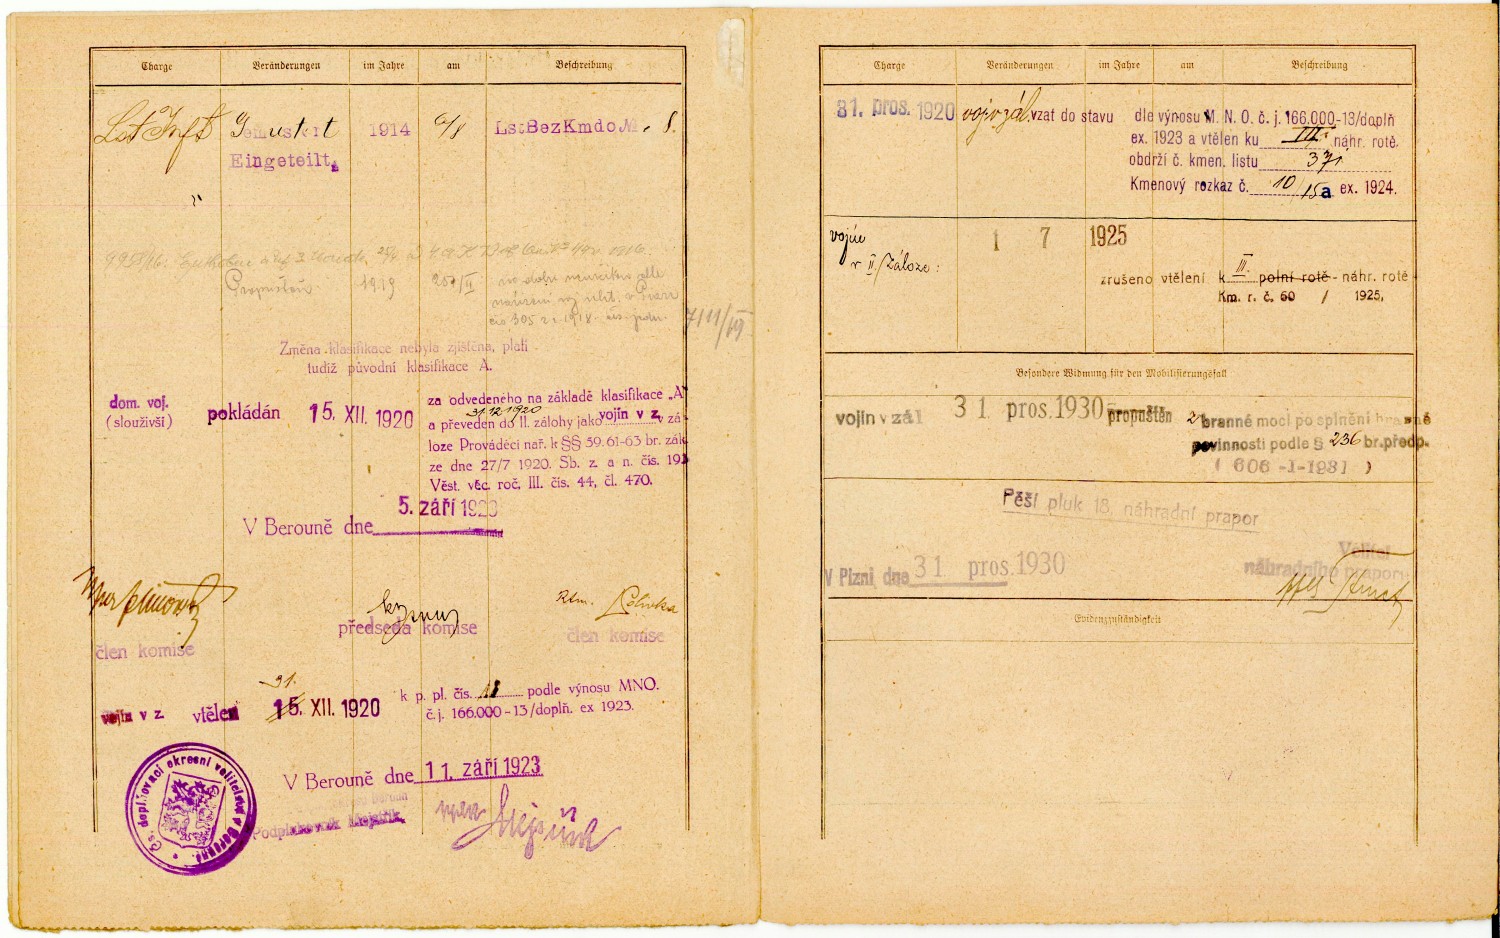 Charge Veränderungen im Jahre am Beschreibung
Lst Inft Gemustert 1914 LstBezKmdo N. 8.
Eingeteilt.
"
1916.
Propuštěn 1919
čís 305 1918
Změna klasifikace nebyla zjištěna, platí
tudíž původní klasifikace A.
dom. voj.
(slouživší)
pokládán 15. XII. 1920
za odvedeného na základě klasifikace „A"
31.12.1920
a převeden do II. zálohy jako vojín v z. v zá-
loze Prováděcí nař. k §§ 59. 61-63 br. zák
ze dne 27/7 1920. Sb. z. a n. čís. 19
Věst. věc. roč. III. čís. 44, čl. 470.
V Berouně dne 5. září 1923
předseda komise
člen komise
člen komise
31.
vojín v z. vtělen 15. XII. 1920 k p. pl. čís. 18 podle výnosu MNO.
č. j. 166.000-13/doplň. ex 1923.
V Berouně dne 11. září 1923
Čs. doplňovací okresní velitelství v Berouně
Podplukovník Mejstřík.
Mejstřík
Charge Veränderungen im Jahre am Beschreibung
31. pros. 1920 voj. v zál. vzat do stavu dle výnosu M. N. O. č. j. 166.000-13/doplň
ex. 1923 a vtělen ku III. náhr. rotě.
obdrží č. kmen. listu 371
Kmenový rozkaz č. 10/15a ex. 1924.
vojín
v II/Záloze:
1 7 1925
zrušeno vtělení k III. polní rotě - náhr. rotě
Km. r. č. 60 / 1925.
Besondere Widmung für den Mobilisierungsfall
vojín v zál 31 pros. 1930 propuštěn z branné moci po splnění branné
povinnosti podle § 236 br. předp.
( 606-I-1931 )
Pěší pluk 18. náhradní prapor
V Plzni dne 31 pros. 1930
Velitel
náhradního praporu:
Evidenzzuständigkeit